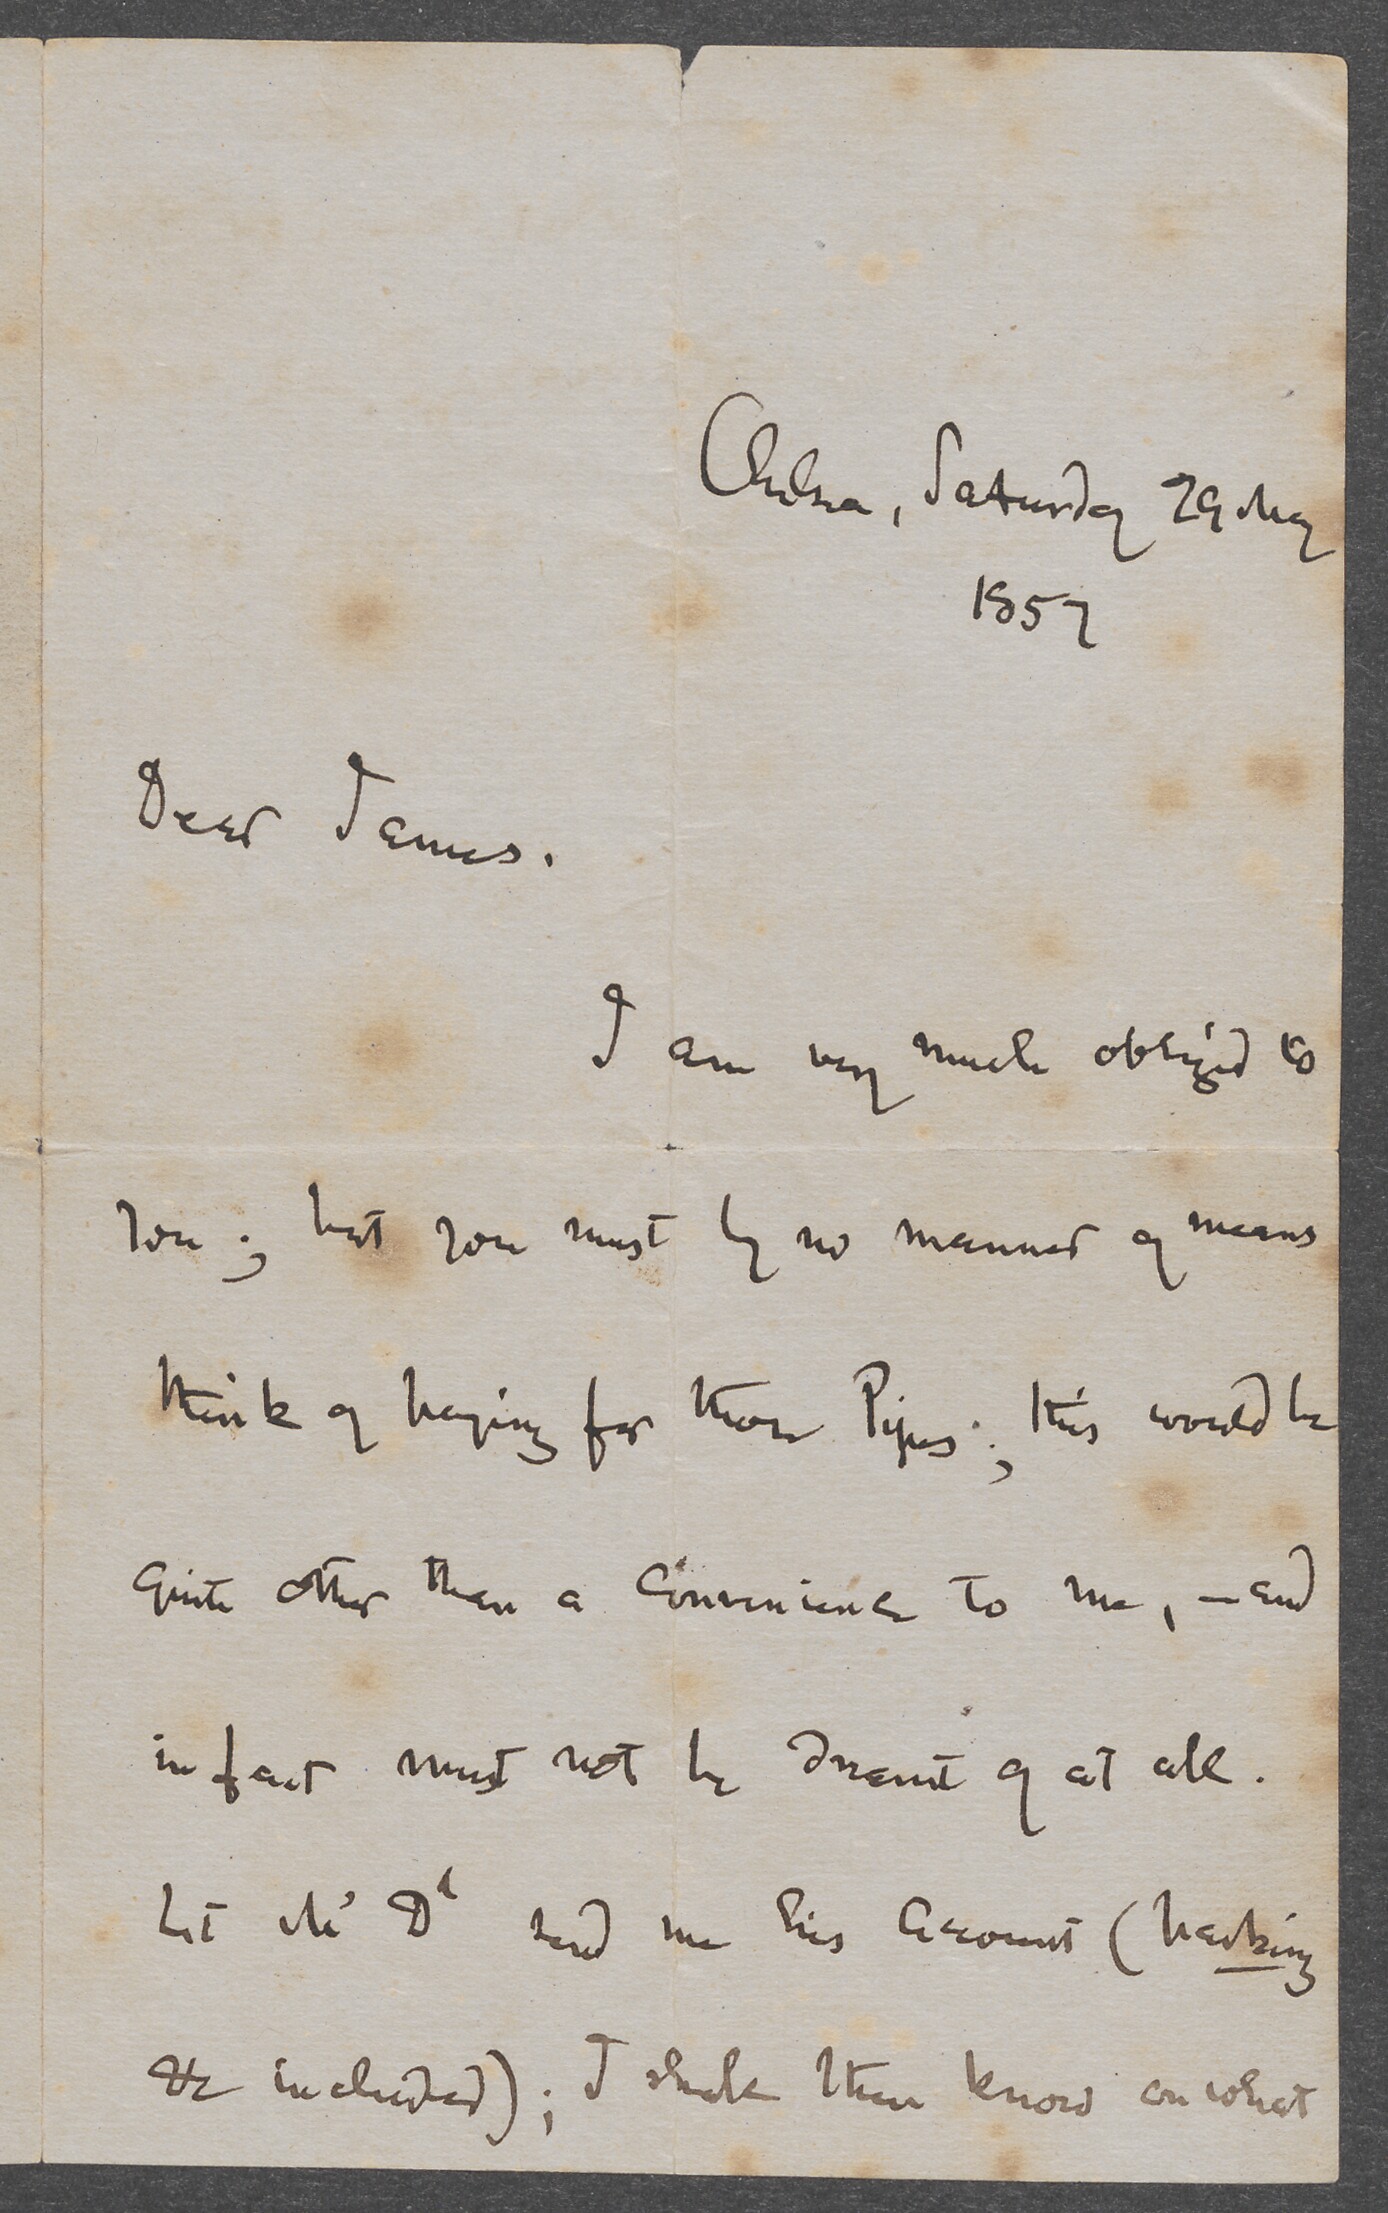 Chelsea, Saturday 29 May
1857
Dear James.
I am very much obliged to
you; but you must by no manner of means
think of paying for those Pipes; this would be
quite other than a convenience to me, — and
in fact must not be dreamt of at all.
Let Mc Dd send me his Account (packing
&c included); I shall then know on what